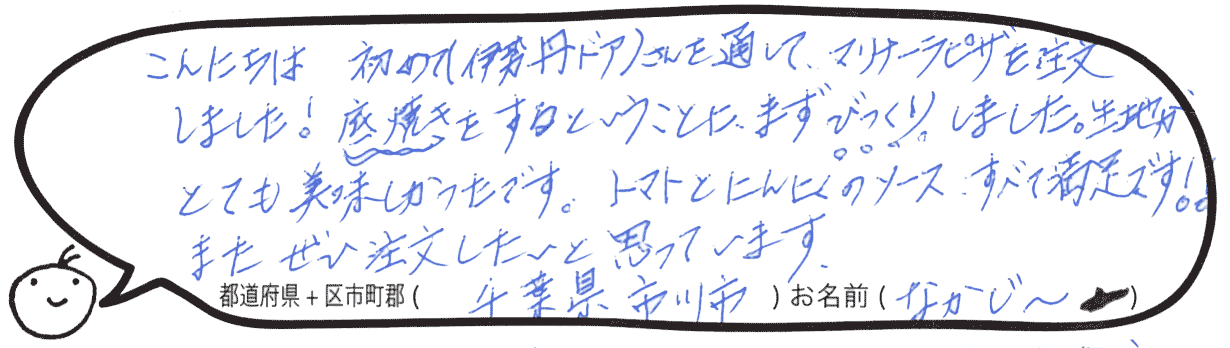 こんにちは 初めて(伊勢丹ドア)さんを通して、マリナーラピザを注文
しました! 底焼きをするということに、まずびっくりしました。生地が
とても美味しかったです。トマトとにんにくのソース、すべて満足です!!
また ぜひ注文したいと思っています。
都道府県+区市町郡( 千葉県 市川市 )お名前( なかじ〜 )